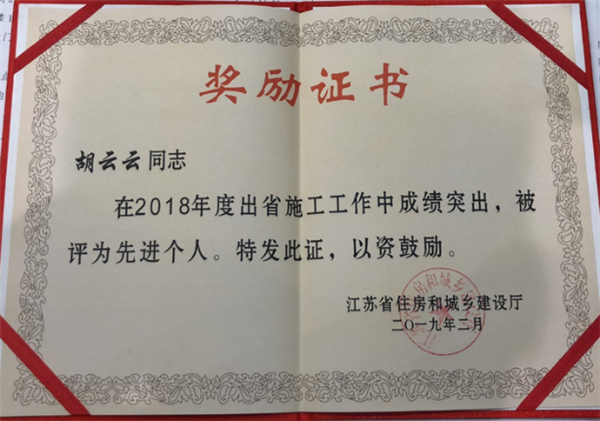 奖励证书
胡云云同志
在2018年度出省施工工作中成绩突出，被
评为先进个人。特发此证，以资鼓励。
江苏省住房和城乡建设厅
二〇一九年二月